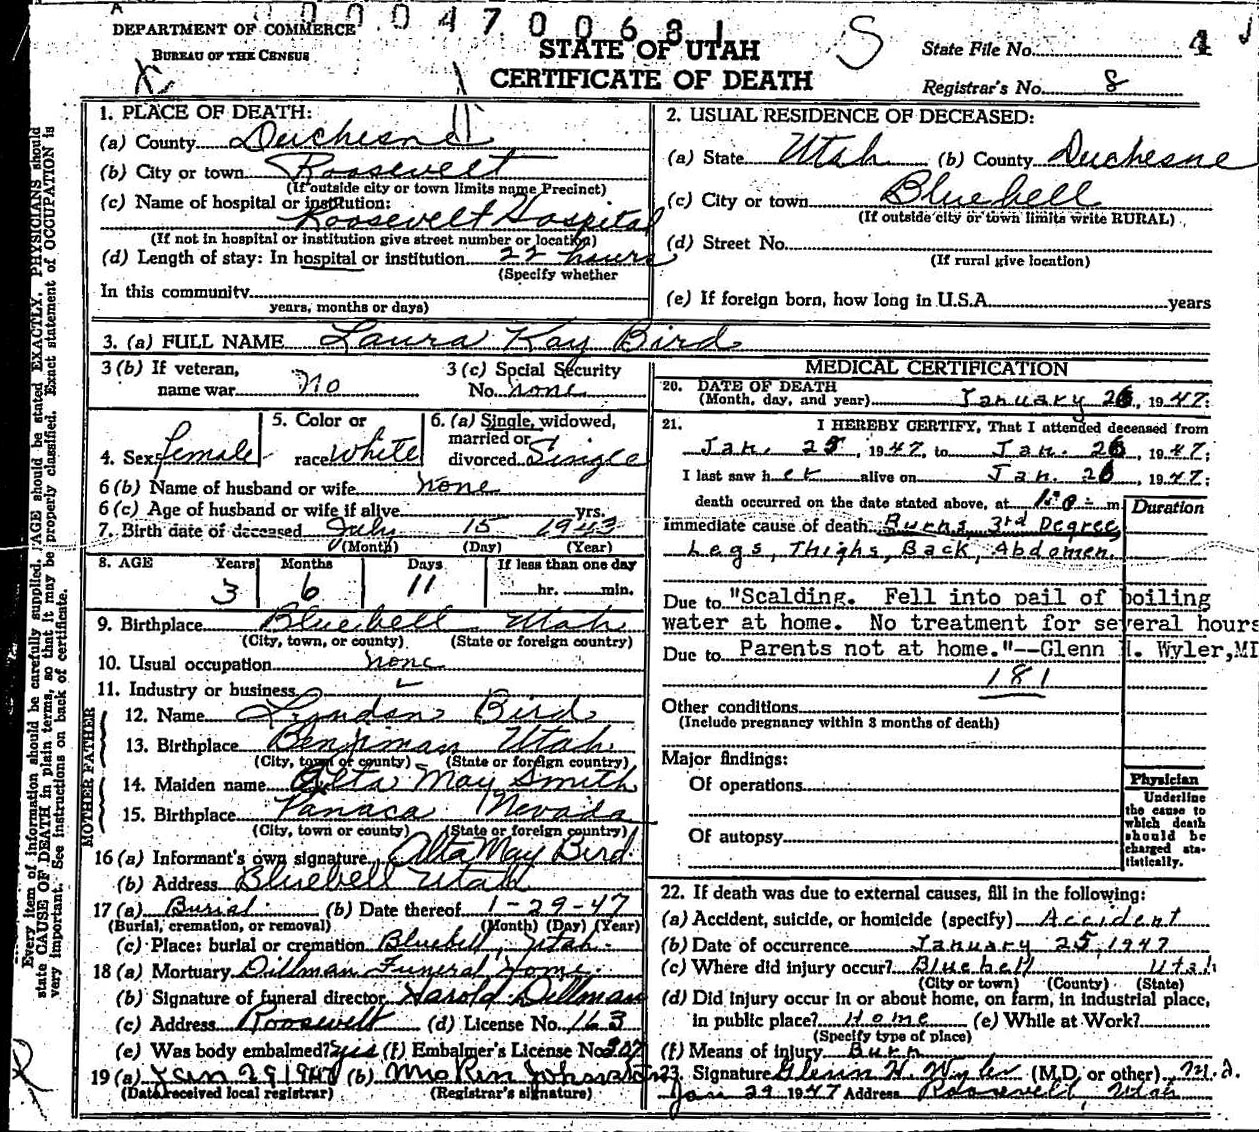 0000470068 1
DEPARTMENT OF COMMERCE
BUREAU OF THE CENSUS
STATE OF UTAH
CERTIFICATE OF DEATH
S
State File No. 4
Registrar's No. 8
Every item of information should be carefully supplied. AGE should be stated EXACTLY. PHYSICIANS should
state CAUSE OF DEATH in plain terms, so that it may be properly classified. Exact statement of OCCUPATION is
very important. See instructions on back of certificate.
1. PLACE OF DEATH:
(a) County Duchesne
(b) City or town Roosevelt
(If outside city or town limits name Precinct)
(c) Name of hospital or institution:
Roosevelt Hospital
(If not in hospital or institution give street number or location)
(d) Length of stay: In hospital or institution 22 hours
(Specify whether
In this community
years, months or days)
2. USUAL RESIDENCE OF DECEASED:
(a) State Utah (b) County Duchesne
(c) City or town Bluebell
(If outside city or town limits write RURAL)
(d) Street No.
(If rural give location)
(e) If foreign born, how long in U.S.A. years
3. (a) FULL NAME Laura Kay Bird
3 (b) If veteran,
name war no
3 (c) Social Security
No. none
4. Sex female
5. Color or
race White
6. (a) Single, widowed,
married or
divorced Single
6 (b) Name of husband or wife none
6 (c) Age of husband or wife if alive yrs.
7. Birth date of deceased July 15 1943
(Month) (Day) (Year)
8. AGE Years Months Days If less than one day
3 6 11 hr. min.
9. Birthplace Bluebell Utah
(City, town, or county) (State or foreign country)
10. Usual occupation none
11. Industry or business
FATHER
12. Name Lyndon Bird
13. Birthplace Benjiman Utah
(City, town or county) (State or foreign country)
MOTHER
14. Maiden name Alta May Smith
15. Birthplace Panaca Nevada
(City, town or county) (State or foreign country)
16 (a) Informant's own signature Alta May Bird
(b) Address Bluebell Utah
17 (a) Burial (b) Date thereof 1-29-47
(Burial, cremation, or removal) (Month) (Day) (Year)
(c) Place: burial or cremation Bluebell, Utah.
18 (a) Mortuary Dillman Funeral Home.
(b) Signature of funeral director Harold Dillman
(c) Address Roosevelt (d) License No. 163
(e) Was body embalmed? yes (f) Embalmer's License No. 207
19 (a) Jan 29 1947 (b) Mrs Ken
(Date received local registrar) (Registrar's signature)
MEDICAL CERTIFICATION
20. DATE OF DEATH
(Month, day, and year) January 26, 1947.
21. I HEREBY CERTIFY, That I attended deceased from
Jan. 25, 1947, to Jan. 26, 1947;
I last saw her alive on Jan. 26, 1947;
death occurred on the date stated above, at m
Duration
Immediate cause of death Burns 3rd Degree
Legs, Thighs, Back, Abdomen.
Due to "Scalding. Fell into pail of boiling
water at home. No treatment for several hours
Due to Parents not at home."--Glenn H. Wyler,MD
181
Other conditions
(Include pregnancy within 3 months of death)
Major findings:
Of operations
Of autopsy
Physician
Underline
the cause to
which death
should be
charged sta-
tistically.
22. If death was due to external causes, fill in the following:
(a) Accident, suicide, or homicide (specify) Accident
(b) Date of occurrence January 25, 1947
(c) Where did injury occur? Bluebell Utah
(City or town) (County) (State)
(d) Did injury occur in or about home, on farm, in industrial place,
in public place? Home (e) While at Work?
(Specify type of place)
(f) Means of injury Burn
23. Signature Glenn H. Wyler (M.D. or other) M.D.
Jan 29 1947 Address Roosevelt, Utah